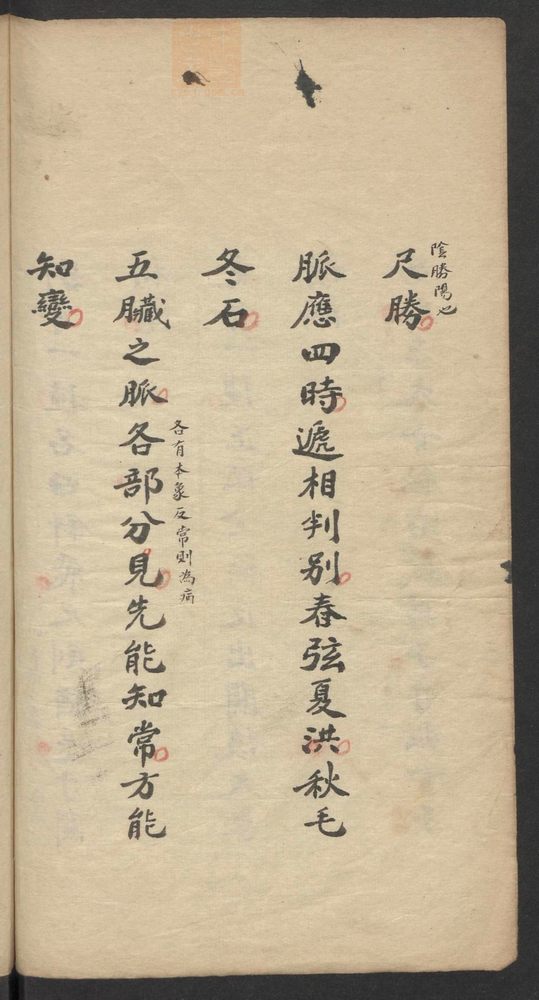 尺勝
陰勝陽也
脈應四時遞相判別春弦夏洪秋毛
冬石
五臟之脈各部分見先能知常方能
各有本象反常則為病
知變